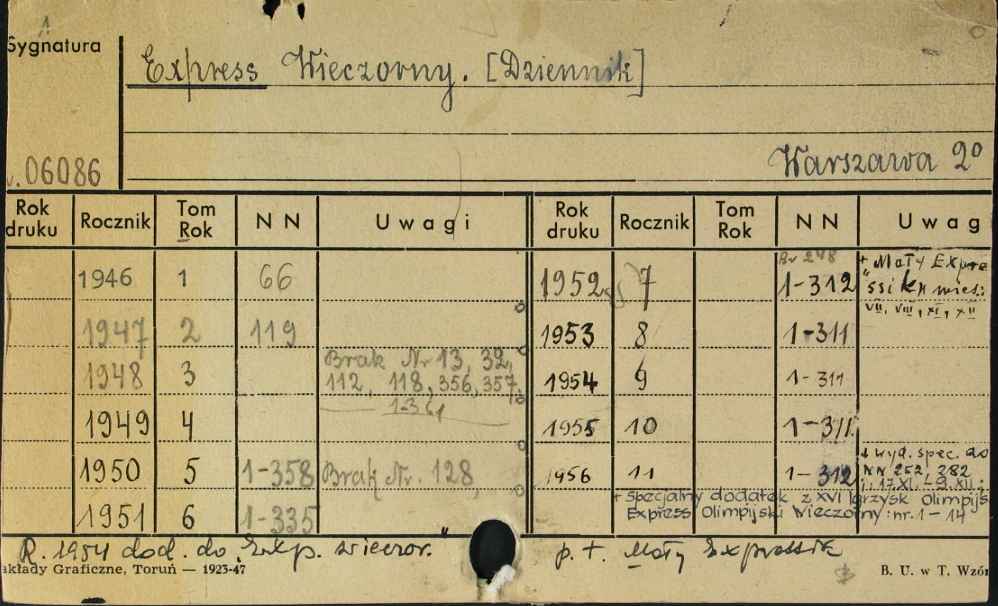 Sygnatura
Express Wieczorny. [Dziennik]
06086
Warszawa 2°
Rok druku Rocznik Tom Rok NN Uwagi Rok druku Rocznik Tom Rok NN Uwag
1946 1 66
1952 7 1-312 + Mały Expre
ssik
VII, VIII, XI, XII
1947 2 119
1953 8 1-311
1948 3 Brak Nr 13, 32,
112, 118, 356, 357,
1-361
1954 9 1-311
1949 4
1955 10 1-311
1950 5 1-358 Brak Nr. 128,
1956 11 1-312 + wyd. spec. do
NN 252, 282
17.XI. - 9.XII.
1951 6 1-335
+ Specjalny dodatek z XVI Igrzysk Olimpijs
Express Olimpijski Wieczorny: nr. 1-14
R. 1954 dod. do Exp. wieczor. p. t. Mały Expressik
akłady Graficzne, Toruń — 1923-47 B. U. w T. Wzór